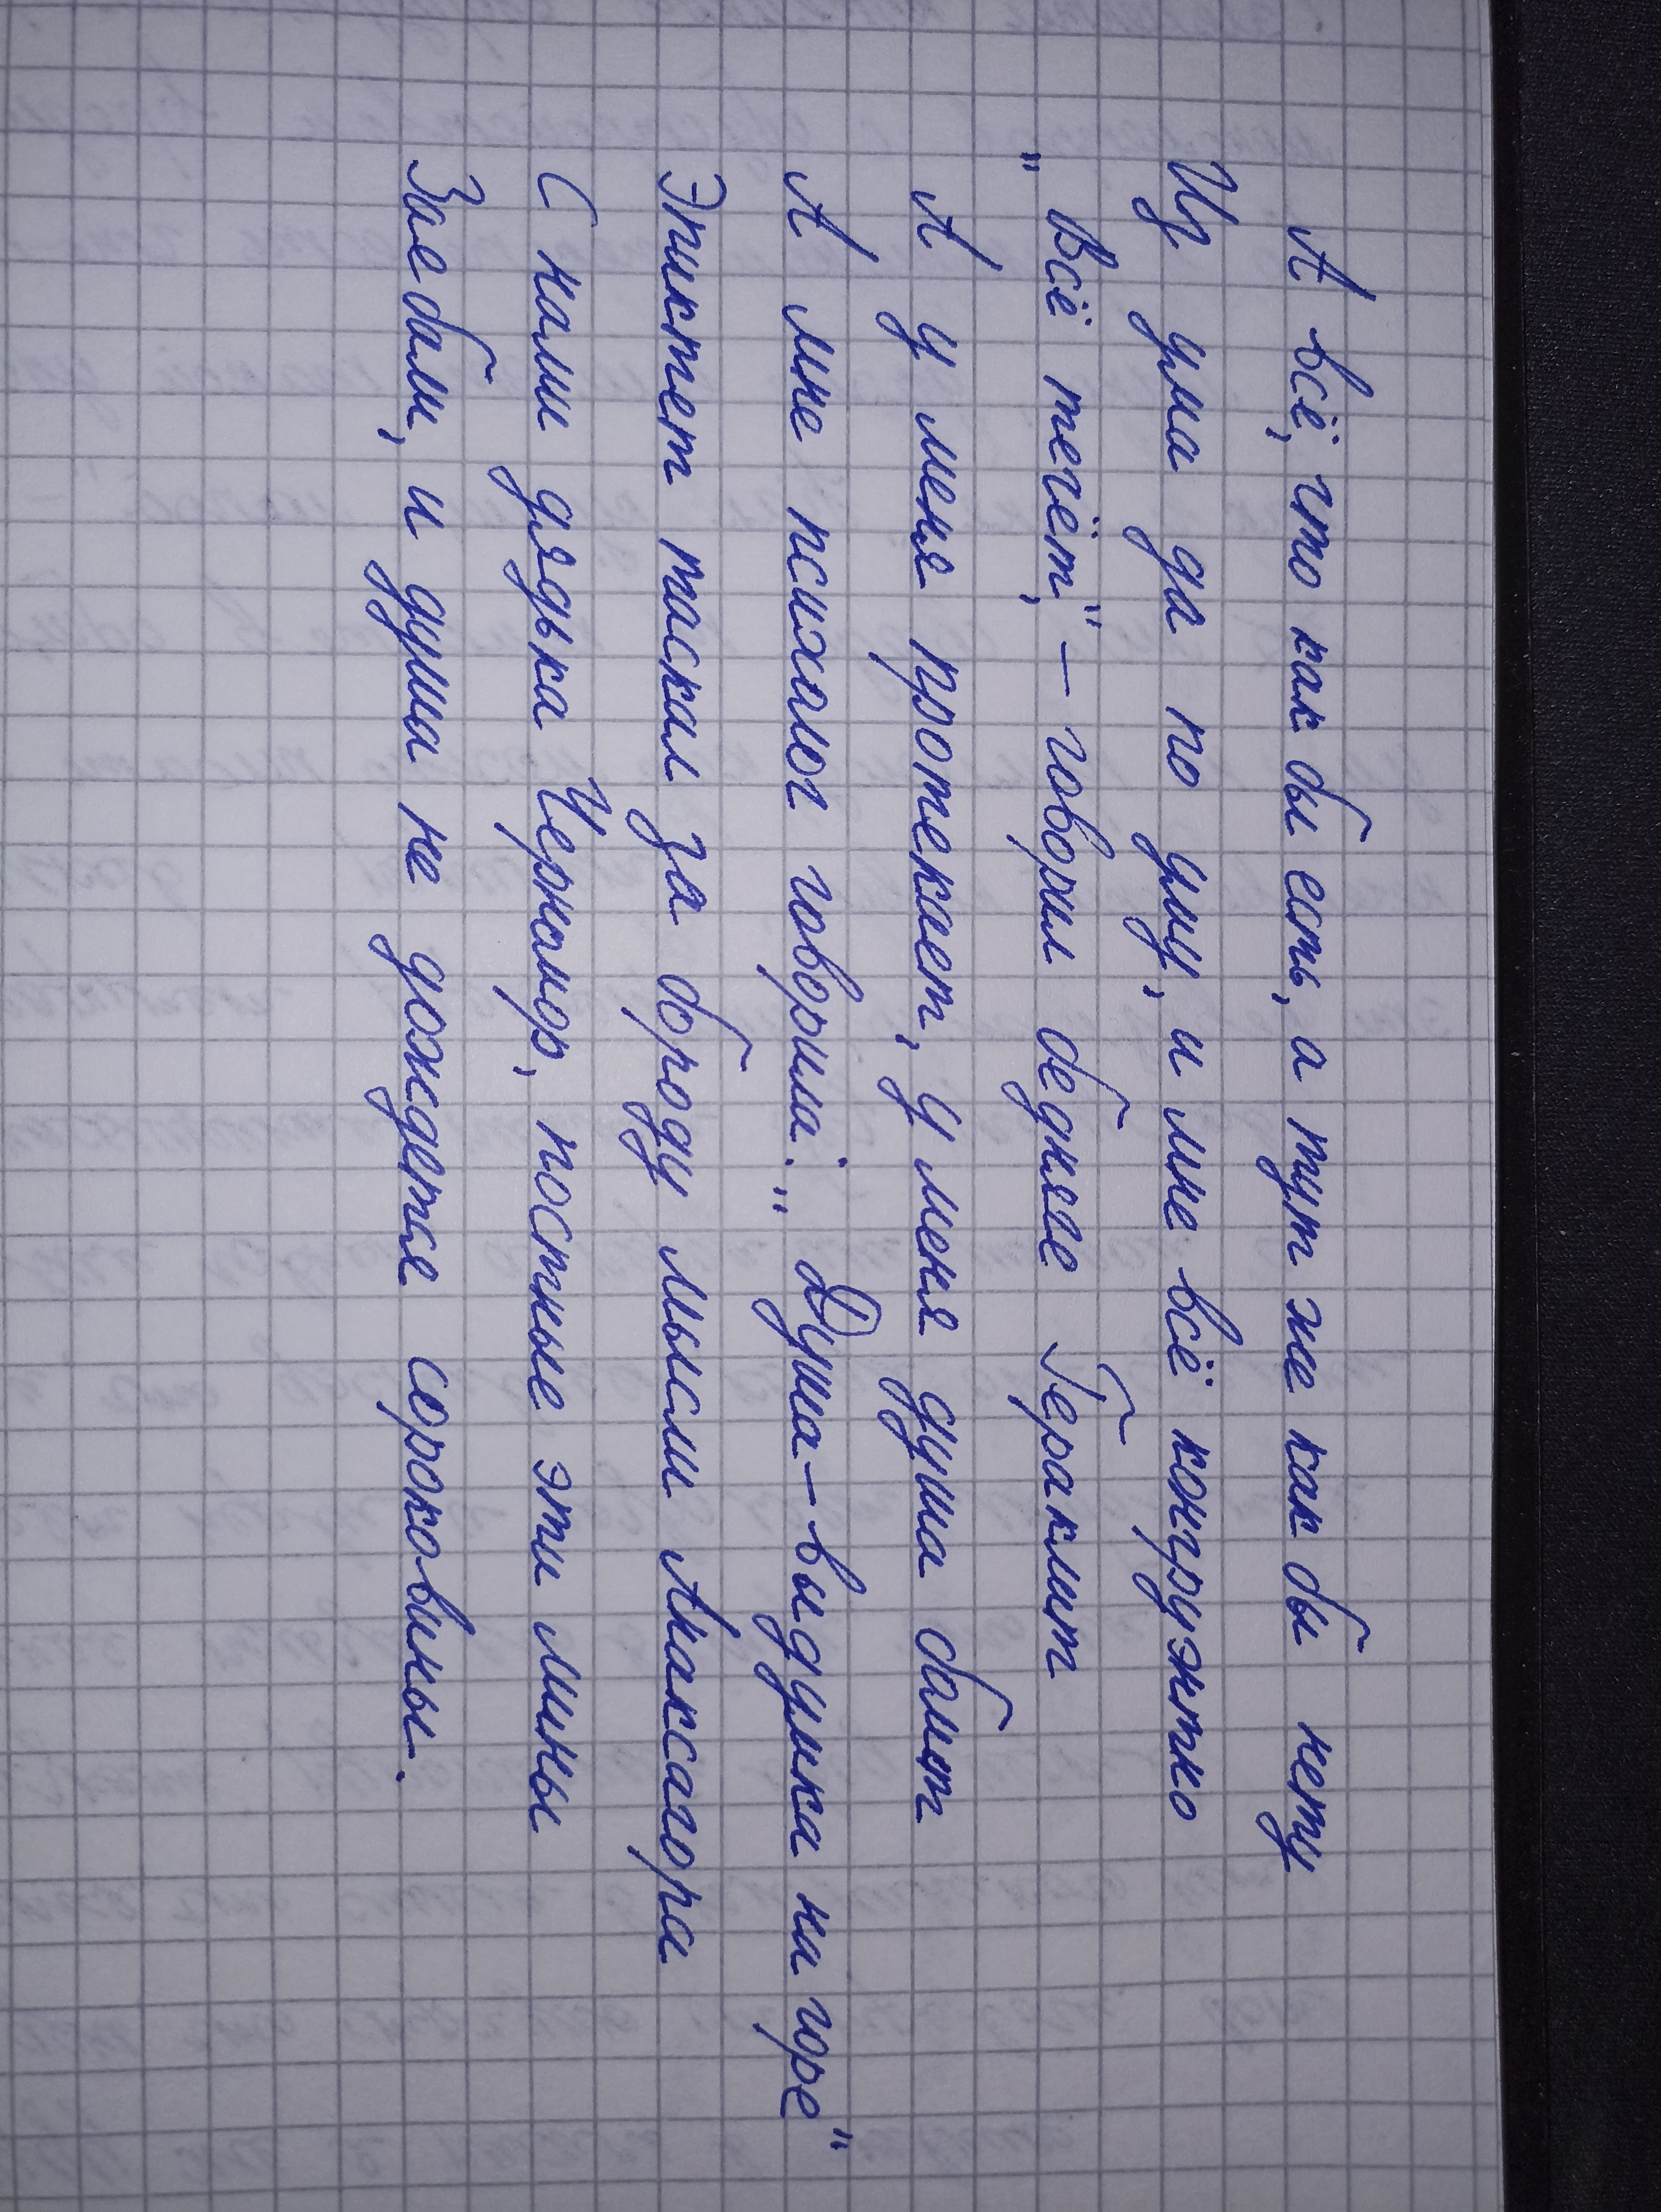 А всё, что как бы есть, а тут же как бы нету
Из ума да по уму, и мне всё конгруэнтно
"Всё течёт," – говорил беднее Гераклит
А у меня протекает, у меня душа болит
А мне психолог говорила: "Душа – выдумка на горе"
Эпиктет таскал за бороду мысли Анаксагора
С нами дядька Черномор, постные эти мины
Заебали, и душа не дождется сороковины.